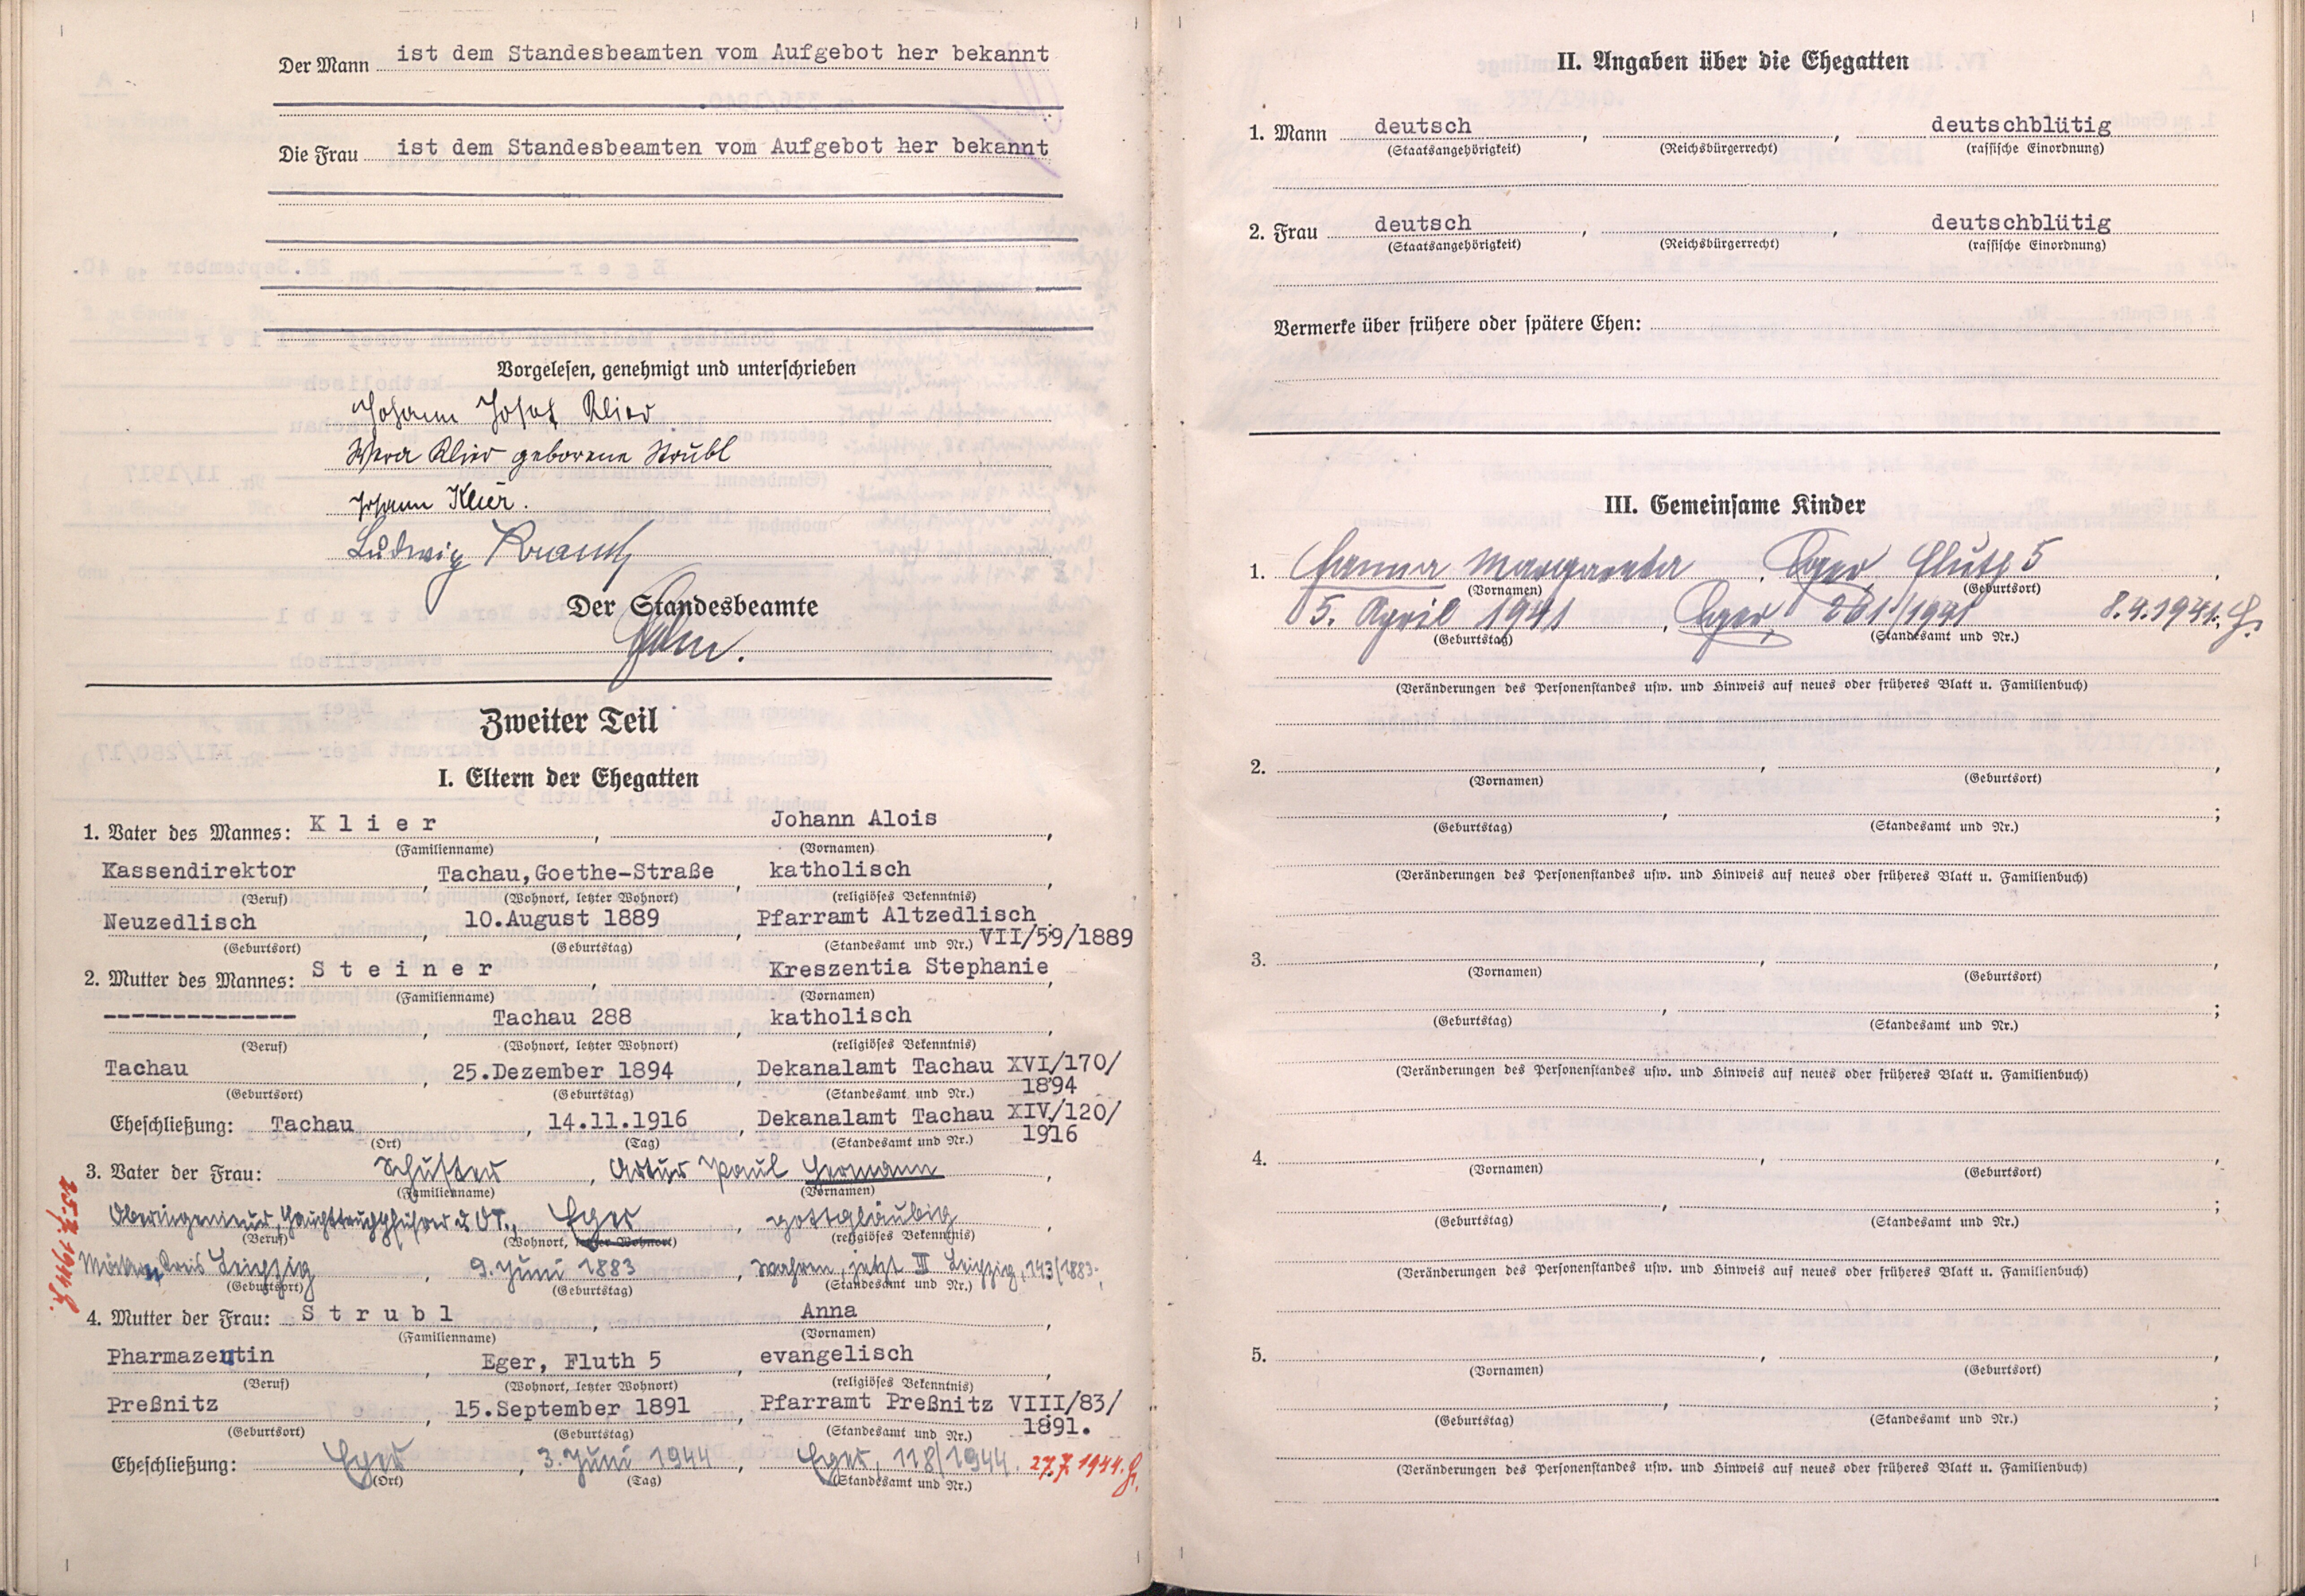 Der Mann ist dem Standesbeamten vom Aufgebot her bekannt
Die Frau ist dem Standesbeamten vom Aufgebot her bekannt
Vorgelesen, genehmigt und unterschrieben
Johann Josef Klier
Wera Klier geborene Strubl
Johann Klier.
Ludwig
Der Standesbeamte
Zweiter Teil
I. Eltern der Ehegatten
1. Vater des Mannes: Klier, Johann Alois,
(Familienname) (Vornamen)
Kassendirektor, Tachau, Goethe-Straße, katholisch,
(Beruf) (Wohnort, letzter Wohnort) (religiöses Bekenntnis)
Neuzedlisch, 10.August 1889, Pfarramt Altzedlisch
(Geburtsort) (Geburtstag) (Standesamt und Nr.) VII/59/1889
2. Mutter des Mannes: Steiner, Kreszentia Stephanie,
(Familienname) (Vornamen)
--------------, Tachau 288, katholisch,
(Beruf) (Wohnort, letzter Wohnort) (religiöses Bekenntnis)
Tachau, 25.Dezember 1894, Dekanalamt Tachau XVI/170/
(Geburtsort) (Geburtstag) (Standesamt und Nr.) 1894
Eheschließung: Tachau, 14.11.1916, Dekanalamt Tachau XIV/120/
(Ort) (Tag) (Standesamt und Nr.) 1916
3. Vater der Frau: Schuster, Artur Paul Hermann,
(Familienname) (Vornamen)
Oberingenieur, Haupttruppführer d. OT., Eger, gottgläubig,
(Beruf) (Wohnort, letzter Wohnort) (religiöses Bekenntnis)
Möckern Kreis Leipzig, 9. Juni 1883, Wahren, jetzt III Leipzig, 143/1883;
(Geburtsort) (Geburtstag) (Standesamt und Nr.)
25.7.1944
4. Mutter der Frau: Strubl, Anna,
(Familienname) (Vornamen)
Pharmazeutin, Eger, Fluth 5, evangelisch,
(Beruf) (Wohnort, letzter Wohnort) (religiöses Bekenntnis)
Preßnitz, 15.September 1891, Pfarramt Preßnitz VIII/83/
(Geburtsort) (Geburtstag) (Standesamt und Nr.) 1891.
Eheschließung: Eger, 3. Juni 1944, Eger, 118/1944. 27.7.1944.
(Ort) (Tag) (Standesamt und Nr.)
II. Angaben über die Ehegatten
1. Mann deutsch, , deutschblütig
(Staatsangehörigkeit) (Reichsbürgerrecht) (rassische Einordnung)
2. Frau deutsch, , deutschblütig
(Staatsangehörigkeit) (Reichsbürgerrecht) (rassische Einordnung)
Vermerke über frühere oder spätere Ehen:
III. Gemeinsame Kinder
1. Hanna Margareta, Eger, Fluth 5,
(Vornamen) (Geburtsort)
5. April 1941, Eger, 261/1941 8.4.1941.
(Geburtstag) (Standesamt und Nr.)
(Veränderungen des Personenstandes usw. und Hinweis auf neues oder früheres Blatt u. Familienbuch)
2. , ,
(Vornamen) (Geburtsort)
, ;
(Geburtstag) (Standesamt und Nr.)
(Veränderungen des Personenstandes usw. und Hinweis auf neues oder früheres Blatt u. Familienbuch)
3. , ,
(Vornamen) (Geburtsort)
, ;
(Geburtstag) (Standesamt und Nr.)
(Veränderungen des Personenstandes usw. und Hinweis auf neues oder früheres Blatt u. Familienbuch)
4. , ,
(Vornamen) (Geburtsort)
, ;
(Geburtstag) (Standesamt und Nr.)
(Veränderungen des Personenstandes usw. und Hinweis auf neues oder früheres Blatt u. Familienbuch)
5. , ,
(Vornamen) (Geburtsort)
, ;
(Geburtstag) (Standesamt und Nr.)
(Veränderungen des Personenstandes usw. und Hinweis auf neues oder früheres Blatt u. Familienbuch)